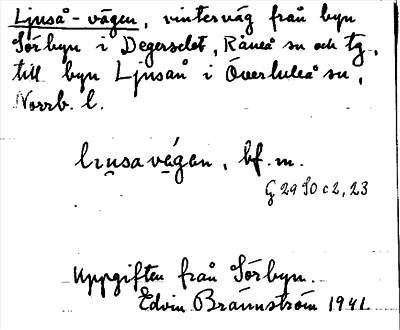 Ljuså-vägen, vinterväg från byn
Sörbyn i Degerselet, Råneå sn och tg,
till byn Ljuså i Överluleå sn,
Norrb. l.
ljusavégen, bf. m.
G 29 SO c 2, 23
Uppgiften från Sörbyn.
Edvin Brännström 1941